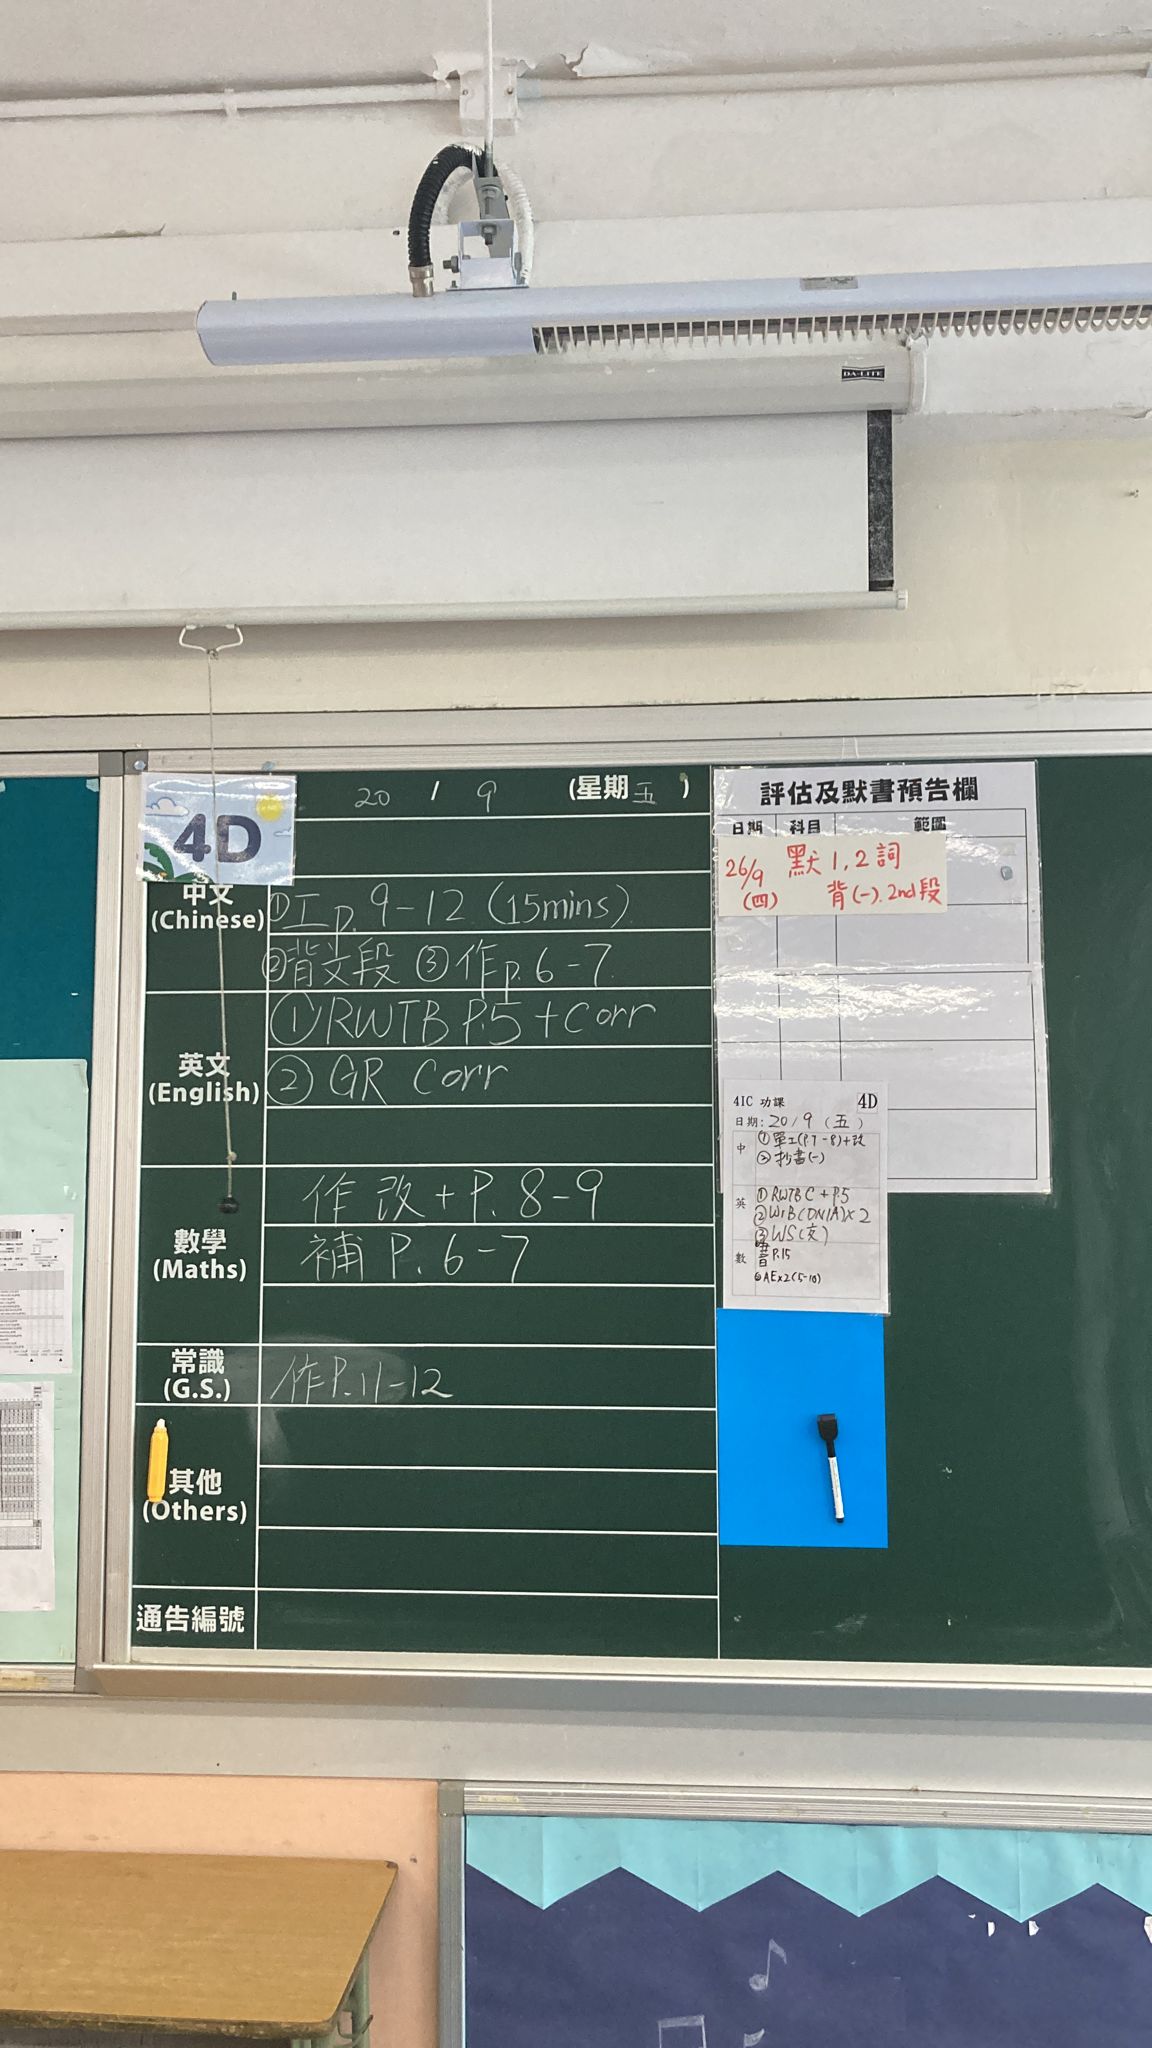 DA-LITE
4D
20 / 9 (星期五)
中文
(Chinese)
①工p. 9-12 (15mins)
②背文段 ③作p. 6-7
英文
(English)
① RWTB P.5 + Corr
② GR Corr
數學
(Maths)
作改 + P. 8-9
補 P. 6-7
常識
(G.S.)
作P. 11-12
其他
(Others)
通告編號
評估及默書預告欄
日期 科目 範圍
26/9 默 1, 2 詞
(四) 背(一). 2nd段
4IC 功課 4D
日期: 20 / 9 (五)
中 ①單工(P.7-8)+改
②抄書(一)
英 ① RWTB C + P.5
② WIB (ON1A) x 2
③ WS (交)
數 P.15
AE x 2 (5-10)